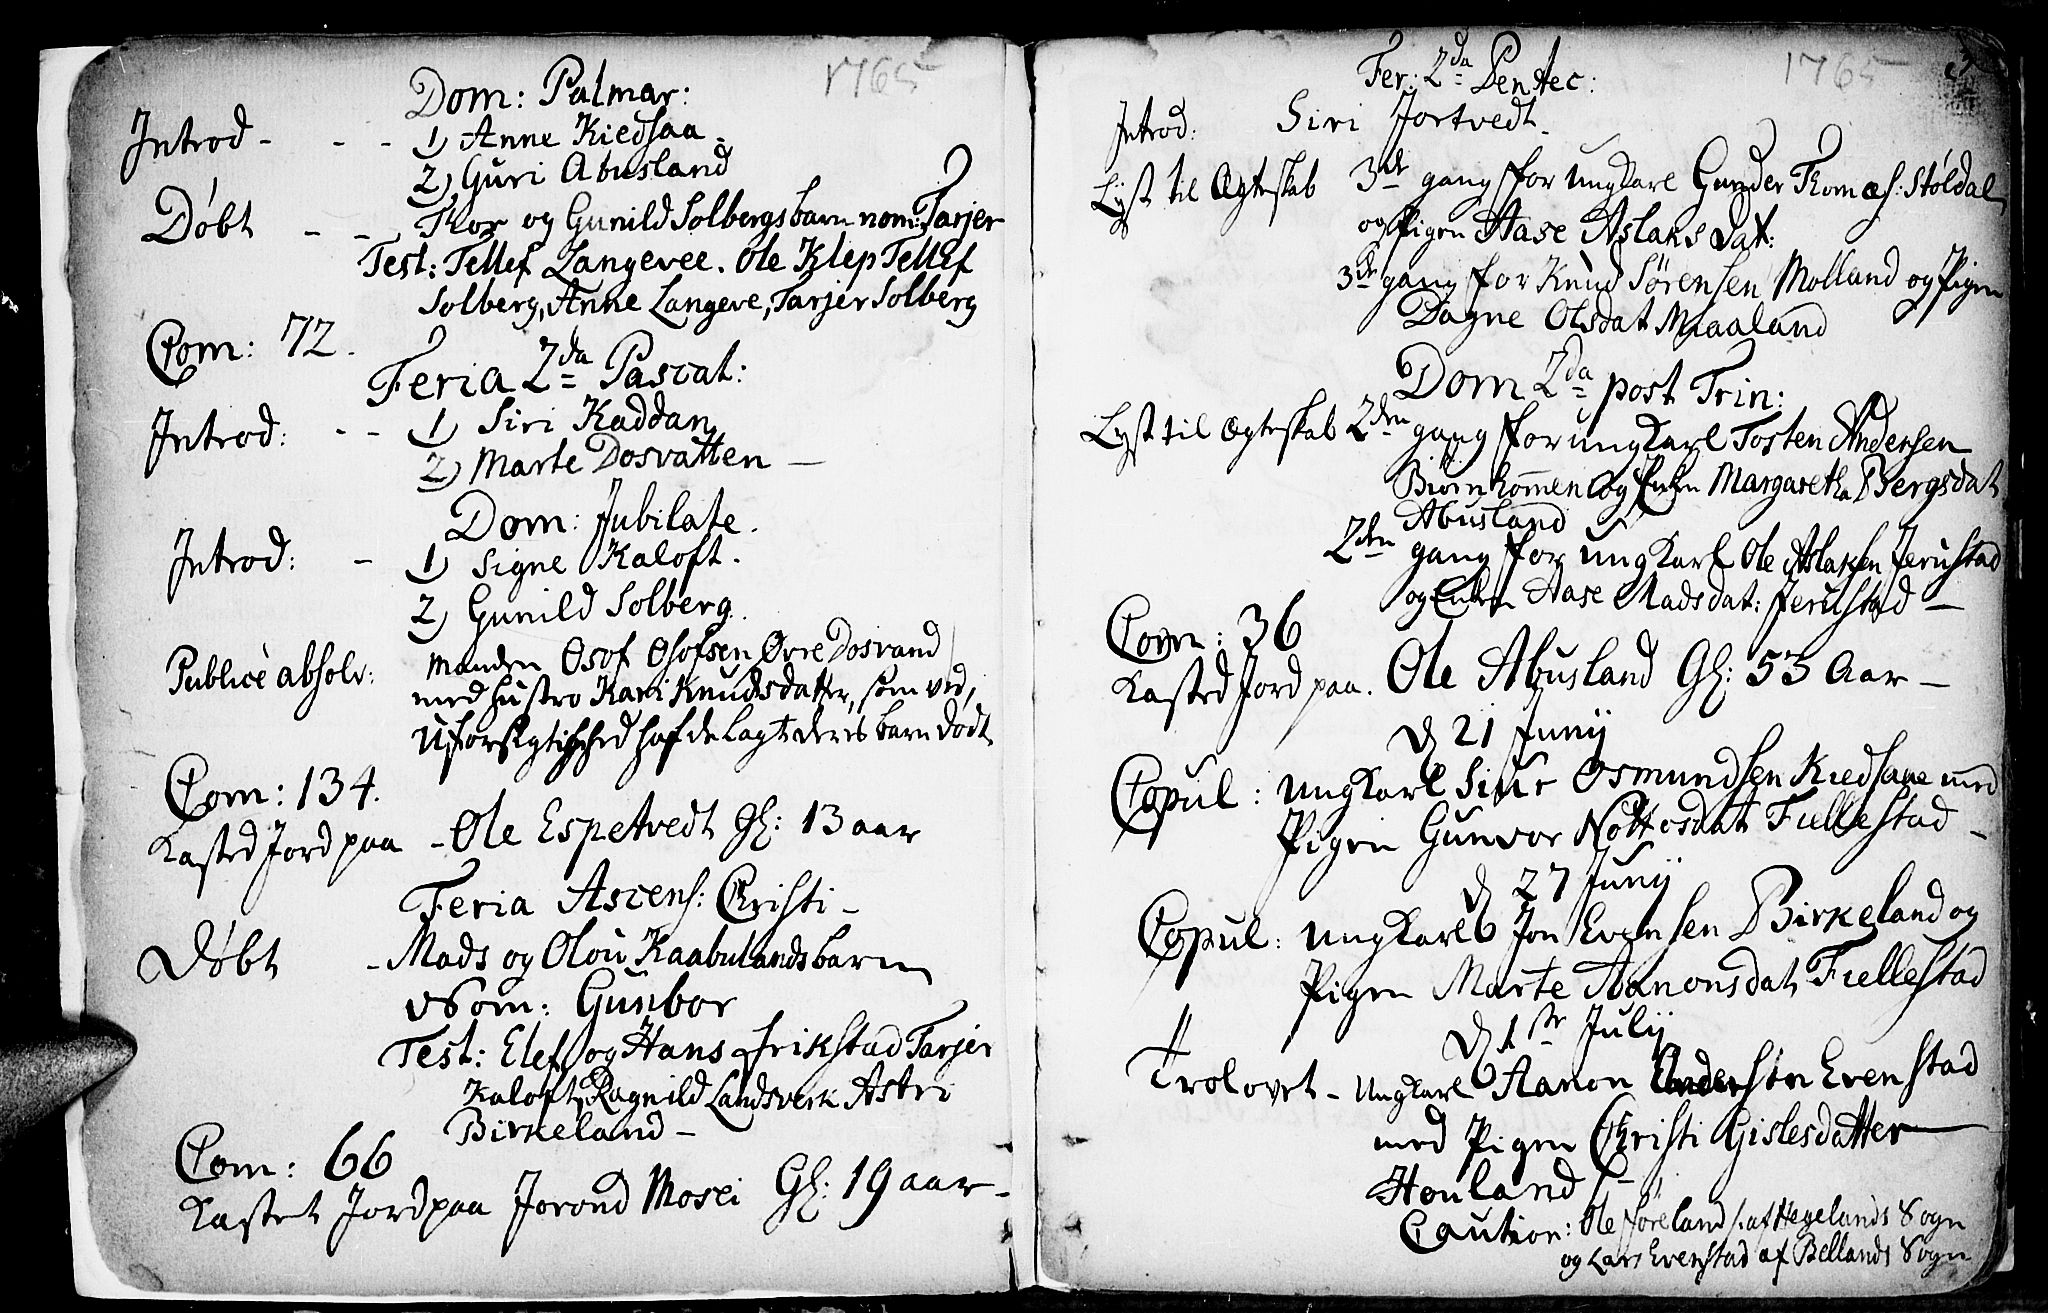 1765
Dom: Palmar:
Introd - - - 1) Anne Kiedsaa -
2) Guri Abusland
Døbt - - Thor og Gunild Solbergs barn nom: Tarjer
Test: Tellef Langevee. Ole Klep Tellef
Solberg, Anne Langeve, Tarjer Solberg
Com: 72.
Feria 2da Pascat:
Introd: - - 1) Siri Kaddan
2) Marte Dosvatten —
Dom: Jubilate.
Introd: - 1) Signe Kaloft.
2) Gunild Solberg.
Publicè absolv: Manden Osof Osofsen Øvre Dosvand
med hustro Kari Knudsdatter, som ved
Uforsigtighed hafde lagt deres barn dødt
Com: 134.
Kasted Jord paa - Ole Espetvedt Gl: 13 aar
Feria Ascens: Christi -
Døbt - Mads og Olou Kaabulands barn
Nom: Gunbor
Test: Elef og Hans Erikstad Tarjer
Kaloft, Ragnild Landsverk Astri
Birkeland -
Com: 66
Kastet Jord paa Jorond Mosei Gl: 19 aar -
1765 3
Fer: 2da Pentec:
Introd: Siri Jortvedt.
Lyst til Ægteskab 3de gang for ungkarl Gunder Thomæs: Stöldal
og Pigen Aase Aslaks dat:
3de gang for Knud Sørensen Molland og Pigen
Dagne Olsdat Maaland
Dom 2da post Trin:
Lyst til Ægteskab 2den gang for ungkarl Tosten Andersen
Biørnkommen og Enken Margaretha Bergsdat
Abusland
2den gang for ungkarl Ole Aslaksen Jerustad
og Enken Aase Madsdat: Jerustad —
Com: 36
Kasted Jord paa. Ole Abusland Gl: 53 Aar —
D 21 Junij
Copul: ungkarl Siur Osmundsen Kiedsaae med
Pigen Gunvor Nottosdat Fiellestad -
D 27 Junij
Copul: ungkarl Jon Evensen Birkeland og
Pigen Marte Aanonsdat Fiellestad
D 1ste Julij
Trolovet - ungkarl Aanon Andersøn Evenstad
med Pigen Christi Gislesdatter
Honland -
Caution: Ole Føreland /: af Hegelands Sogn
og Lars Evenstad af Bellands Sogn